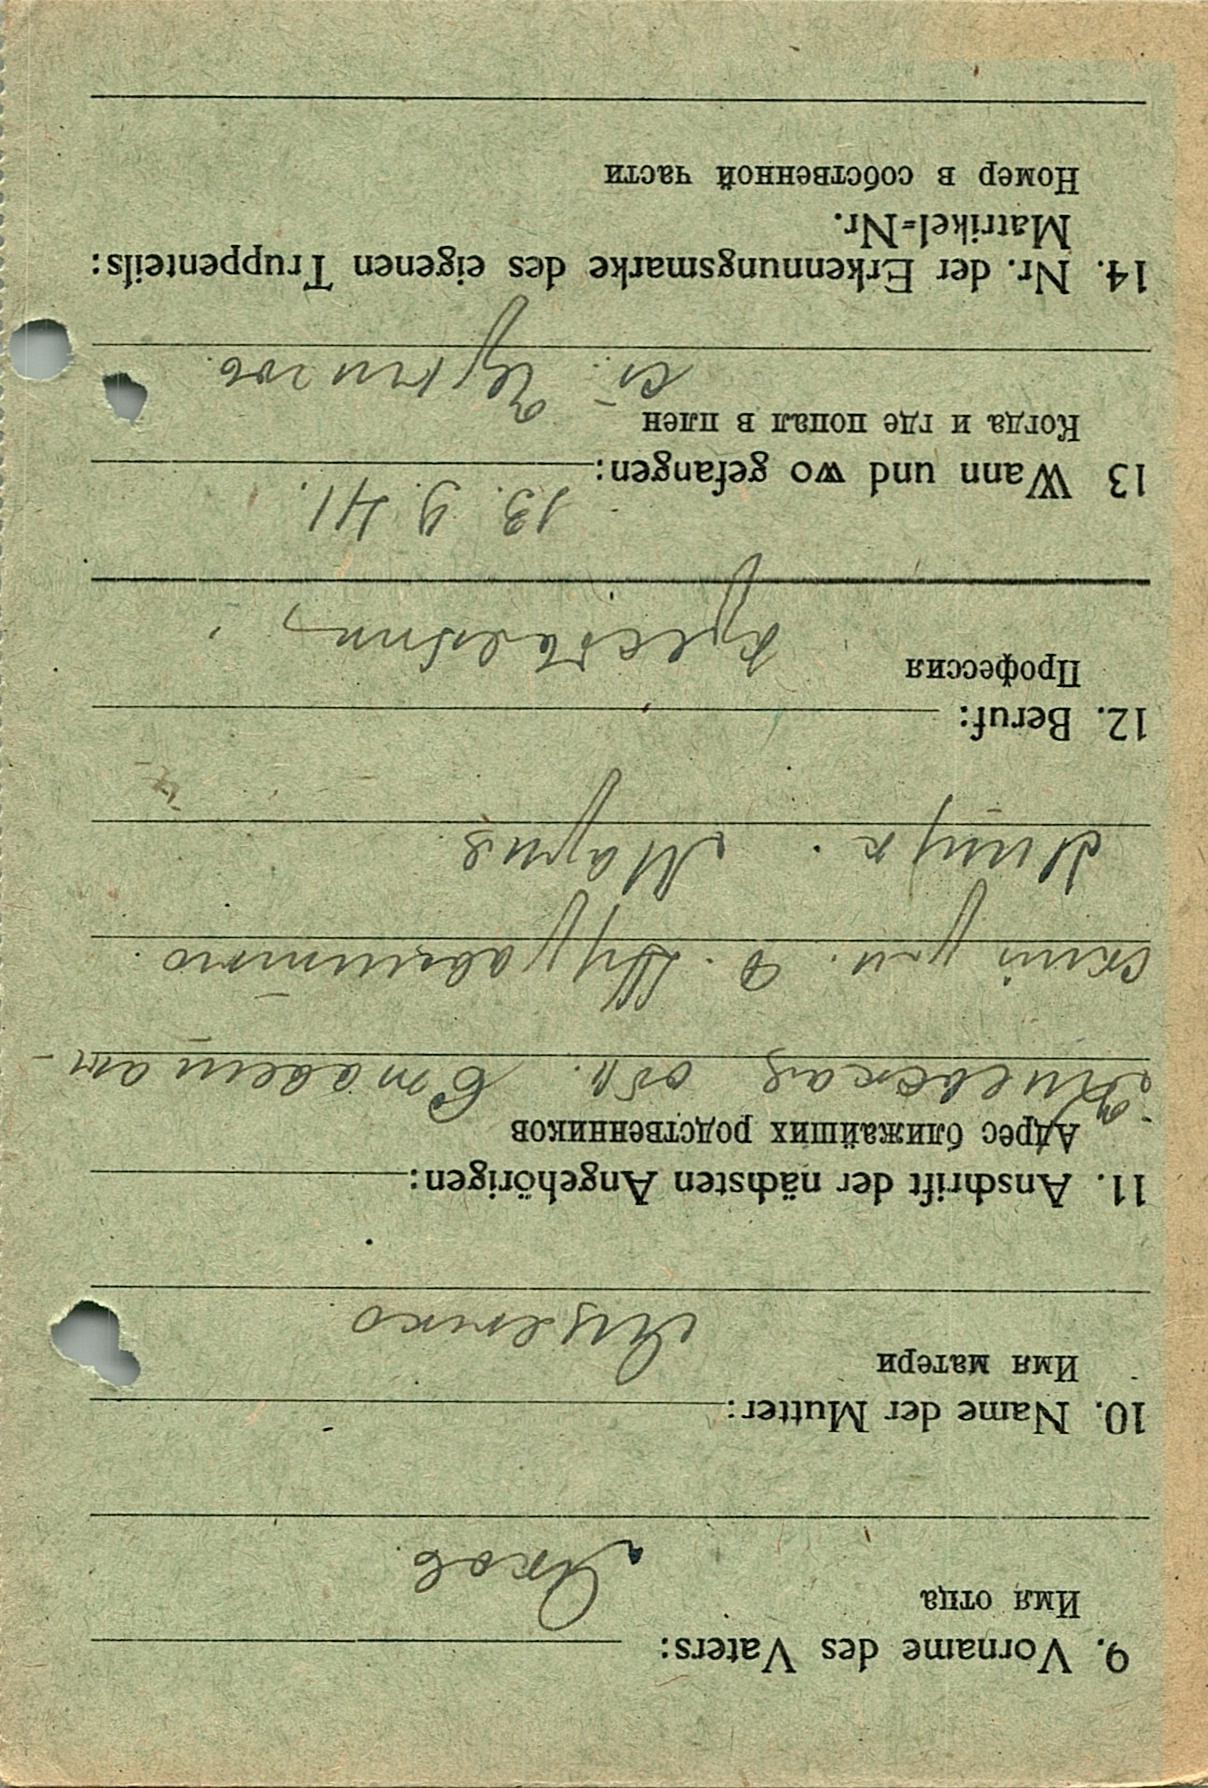 9. Vorname des Vaters:
Имя отца
Яков
10. Name der Mutter:
Имя матери
Луценко
11. Anschrift der nächsten Angehörigen:
Адрес ближайших родственников
Киевская обл.
ский р-н. д. Журавлиного
Мария
12. Beruf:
Профессия
13 Wann und wo gefangen:
13. 9. 41.
Когда и где попал в плен
ст. Чернигов
14. Nr. der Erkennungsmarke des eigenen Truppenteils:
Matrikel=Nr.
Номер в собственной части